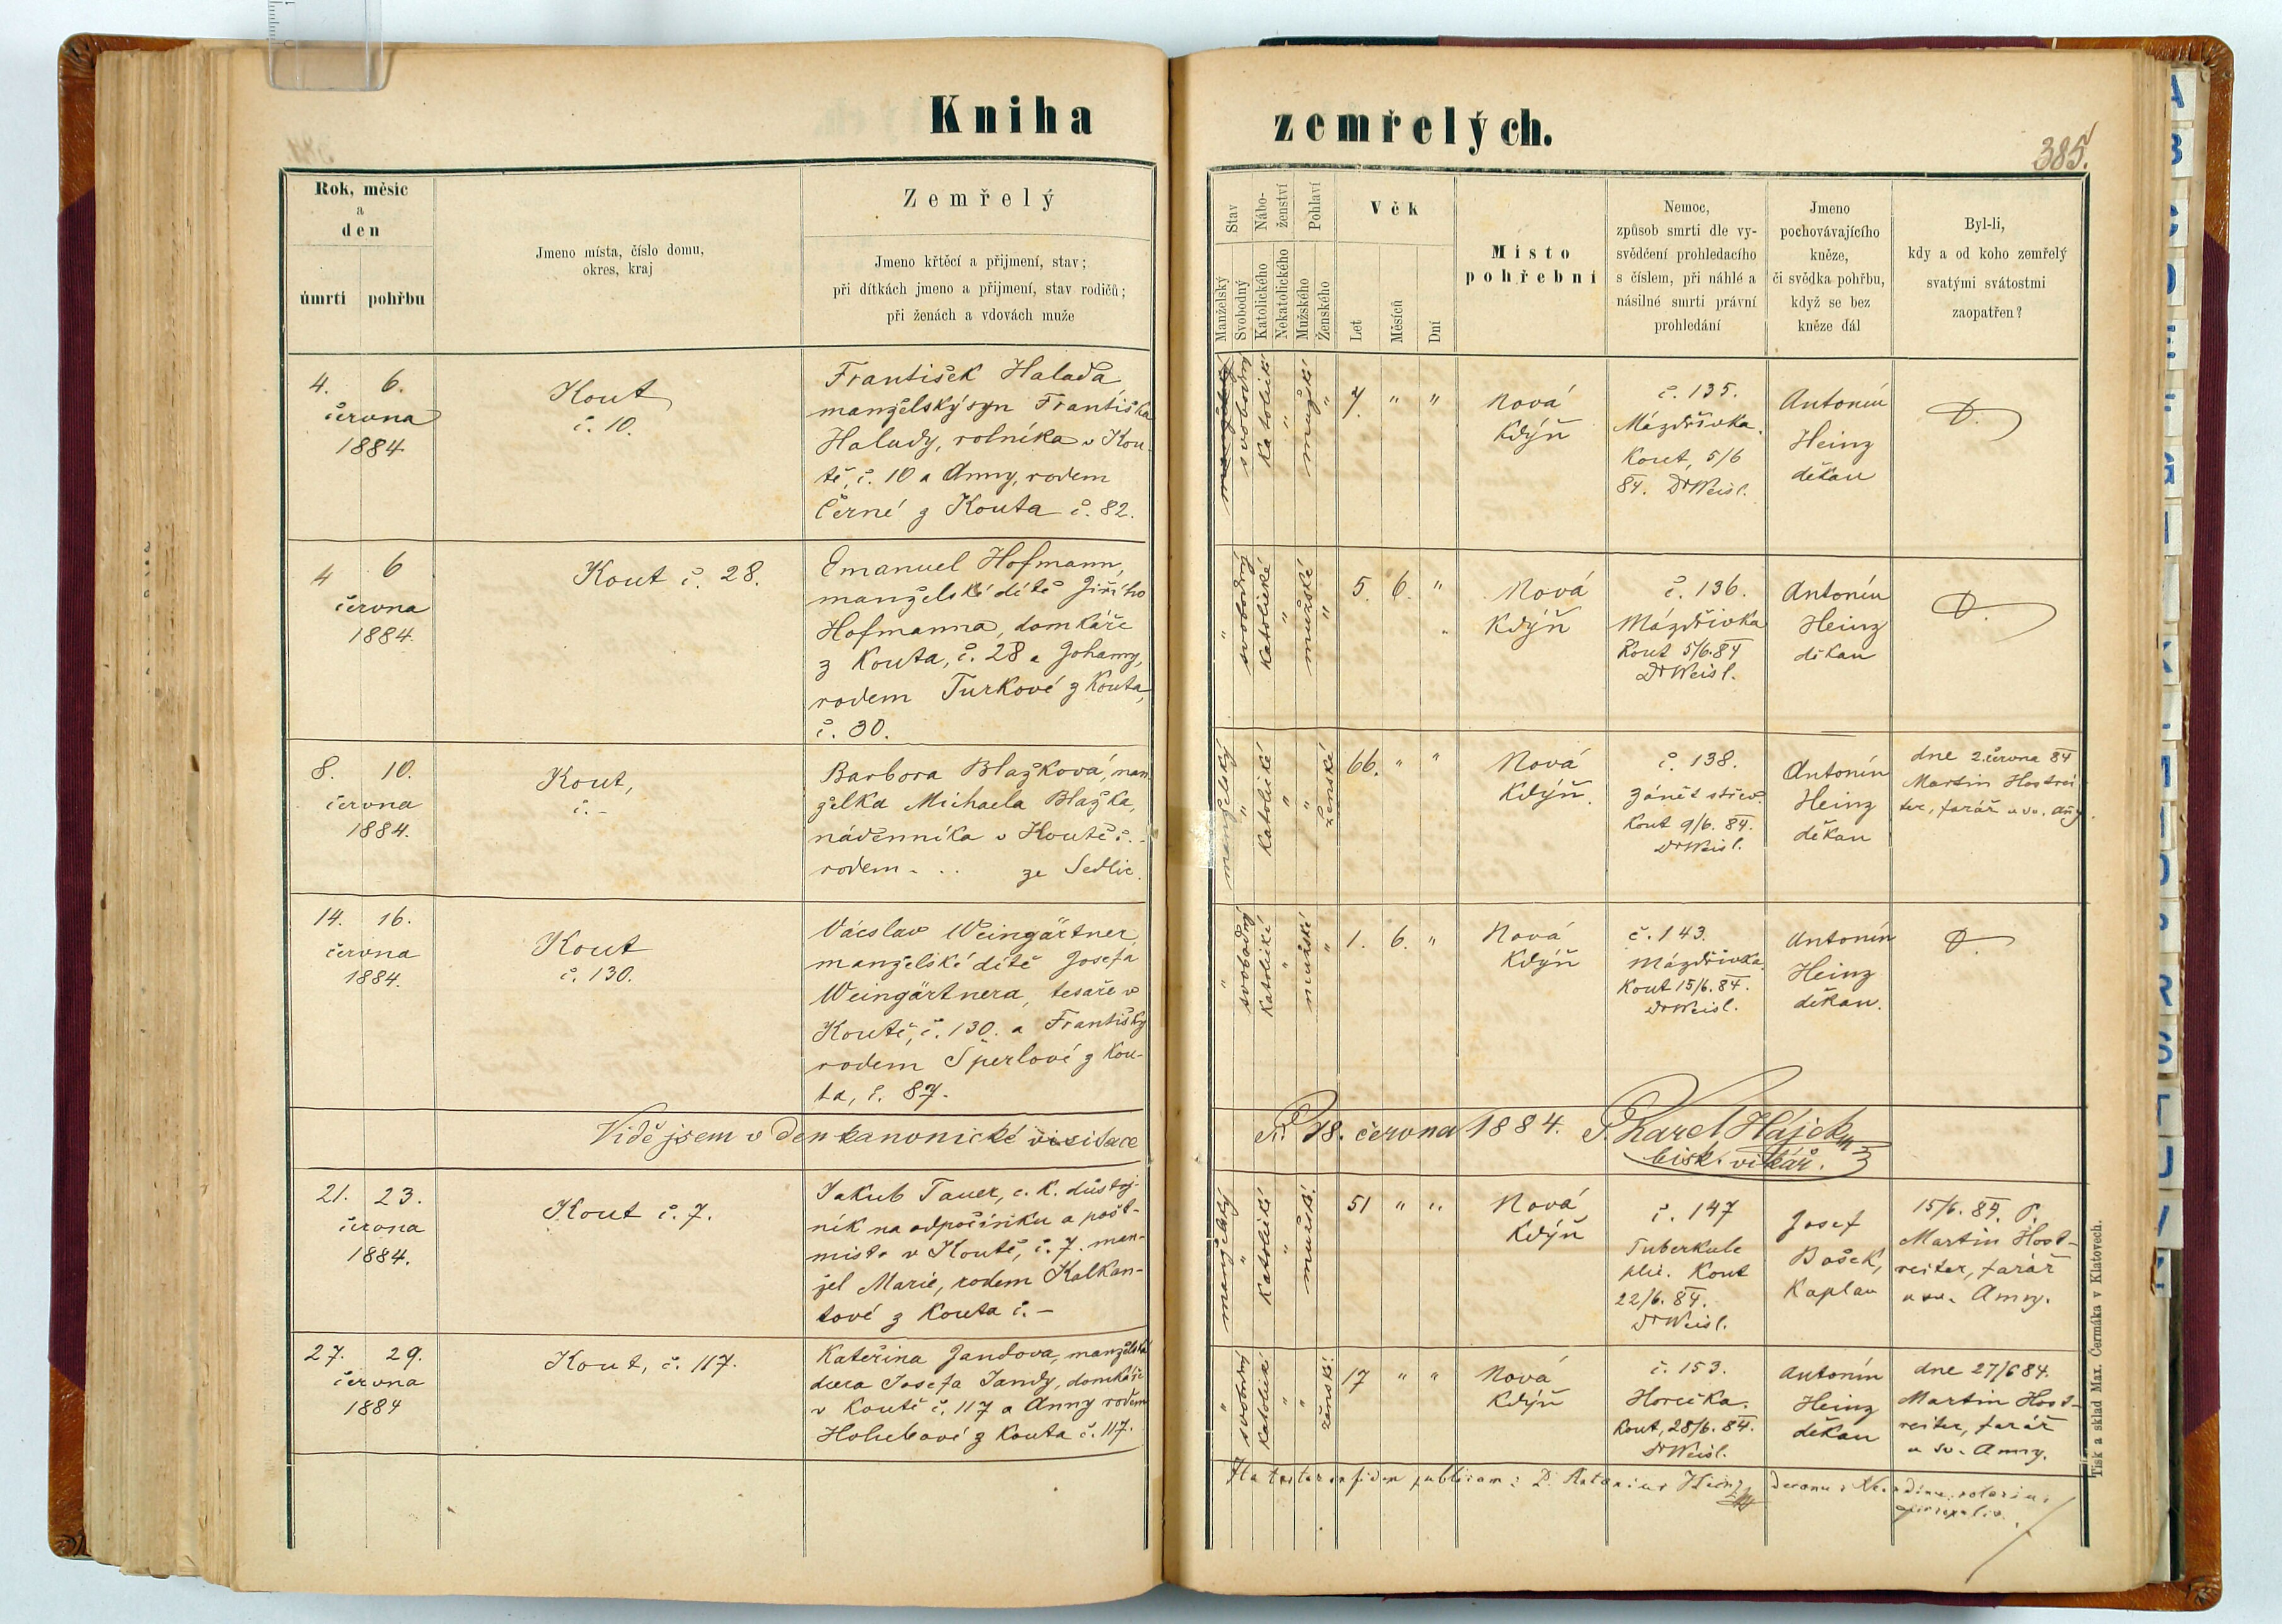 Kniha zemřelých.
385.
Rok, měsic
a
den
úmrtí
pohřbu
Jmeno místa, číslo domu,
okres, kraj
Zemřelý
Jmeno křtěcí a přijmení, stav;
při dítkách jmeno a přijmení, stav rodičů;
při ženách a vdovách muže
Stav
Manželský
Svobodný
Nábo-
ženství
Katolického
Nekatolického
Pohlaví
Mužského
Ženského
Věk
Let
Měsích
Dní
Místo
pohřební
Nemoc,
způsob smrti dle vy-
svědčení prohledacího
s číslem, při náhlé a
násilné smrti právní
prohledání
Jmeno
pochovávajícího
kněze,
či svědka pohřbu,
když se bez
kněze dál
Byl-li,
kdy a od koho zemřelý
svatými svátostmi
zaopatřen?
4. 6.
června
1884
Kout
č. 10.
František Halada
manželský syn Františka
Halady, rolníka v Kou-
tě, č. 10 a Anny, rodem
Černé z Kouta č. 82.
svobodný
Katolické
"
mužské
"
7. " "
Nová
Kdýň
č. 135.
Mázdřivka.
Kout, 5/6
84. Dr Weisl.
Antonín
Heinz
děkan
4 6
června
1884.
Kout č. 28.
Emanuel Hofmann,
manželské dítě Jiřího
Hofmanna, domkáře
z Kouta, č. 28 a Johany,
rodem Turkové z Kouta,
č. 30.
"
svobodný
Katolické
"
mužské
"
5. 6. "
Nová
Kdýň
č. 136.
Mázdřivka
Kout 5/6.84
Dr Weisl.
Antonín
Heinz
děkan
8. 10.
června
1884.
Kout,
č. -
Barbora Blažková, man
želka Michaela Blažka,
nádenníka v Koutě č. -
rodem - . . ze Sedlic.
manželský
"
Katolické
"
"
ženské
66. " "
Nová
Kdýň.
č. 138.
Zánět střev.
Kout 9/6. 84.
Dr Weisl.
Antonín
Heinz
děkan
dne 2. června 84
Martin Hostrei
ter, farář u sv. Anny
14. 16.
června
1884.
Kout
č. 130.
Václav Weingärtner,
manželské dítě Josefa
Weingärtnera, tesaře v
Koutě, č. 130. a Františky
rodem Šperlové z Kou-
ta, č. 87.
"
svobodný
Katolické
"
mužské
"
1. 6. "
Nová
Kdýň
č. 143.
Mázdřivka.
Kout 15/6. 84.
Dr Weisl.
Antonín
Heinz
děkan.
Viděl jsem v den kanonické visitace
18. června 1884. P. Karel Hájek
bisk. vikář.
21. 23.
června
1884.
Kout č. 7.
Jakub Tauer, c. k. důstoj-
ník na odpočinku a pošt-
mistr v Koutě, č. 7. man-
žel Marie, rodem Kalkan-
tové z Kouta č. -
manželský
"
Katolické
"
mužské.
51 " "
Nová
Kdýň
č. 147
Tuberkule
plic. Kout
22/6. 84.
Dr Weisl.
Josef
Bošek,
Kaplan
15/6. 84. P.
Martin Host-
reiter, farář
u sv. Anny.
27. 29.
června
1884
Kout, č. 117.
Kateřina Jandova, manželská
dcera Josefa Jandy, domkáře
v Koutě č. 117 a Anny rodem
Holubové z Kouta č. 117.
"
svobodný
Katolické
"
"
ženské.
17 " "
Nová
Kdýň
č. 153.
Horečka.
Kout, 28/6. 84.
Dr Weisl.
Antonín
Heinz
děkan
dne 27/6 84.
Martin Host-
reiter, farář
u sv. Anny.
Ita testor in fidem publicam: P. Antonius Heinz decanus
Tisk a sklad Max. Čermáka v Klatovech.